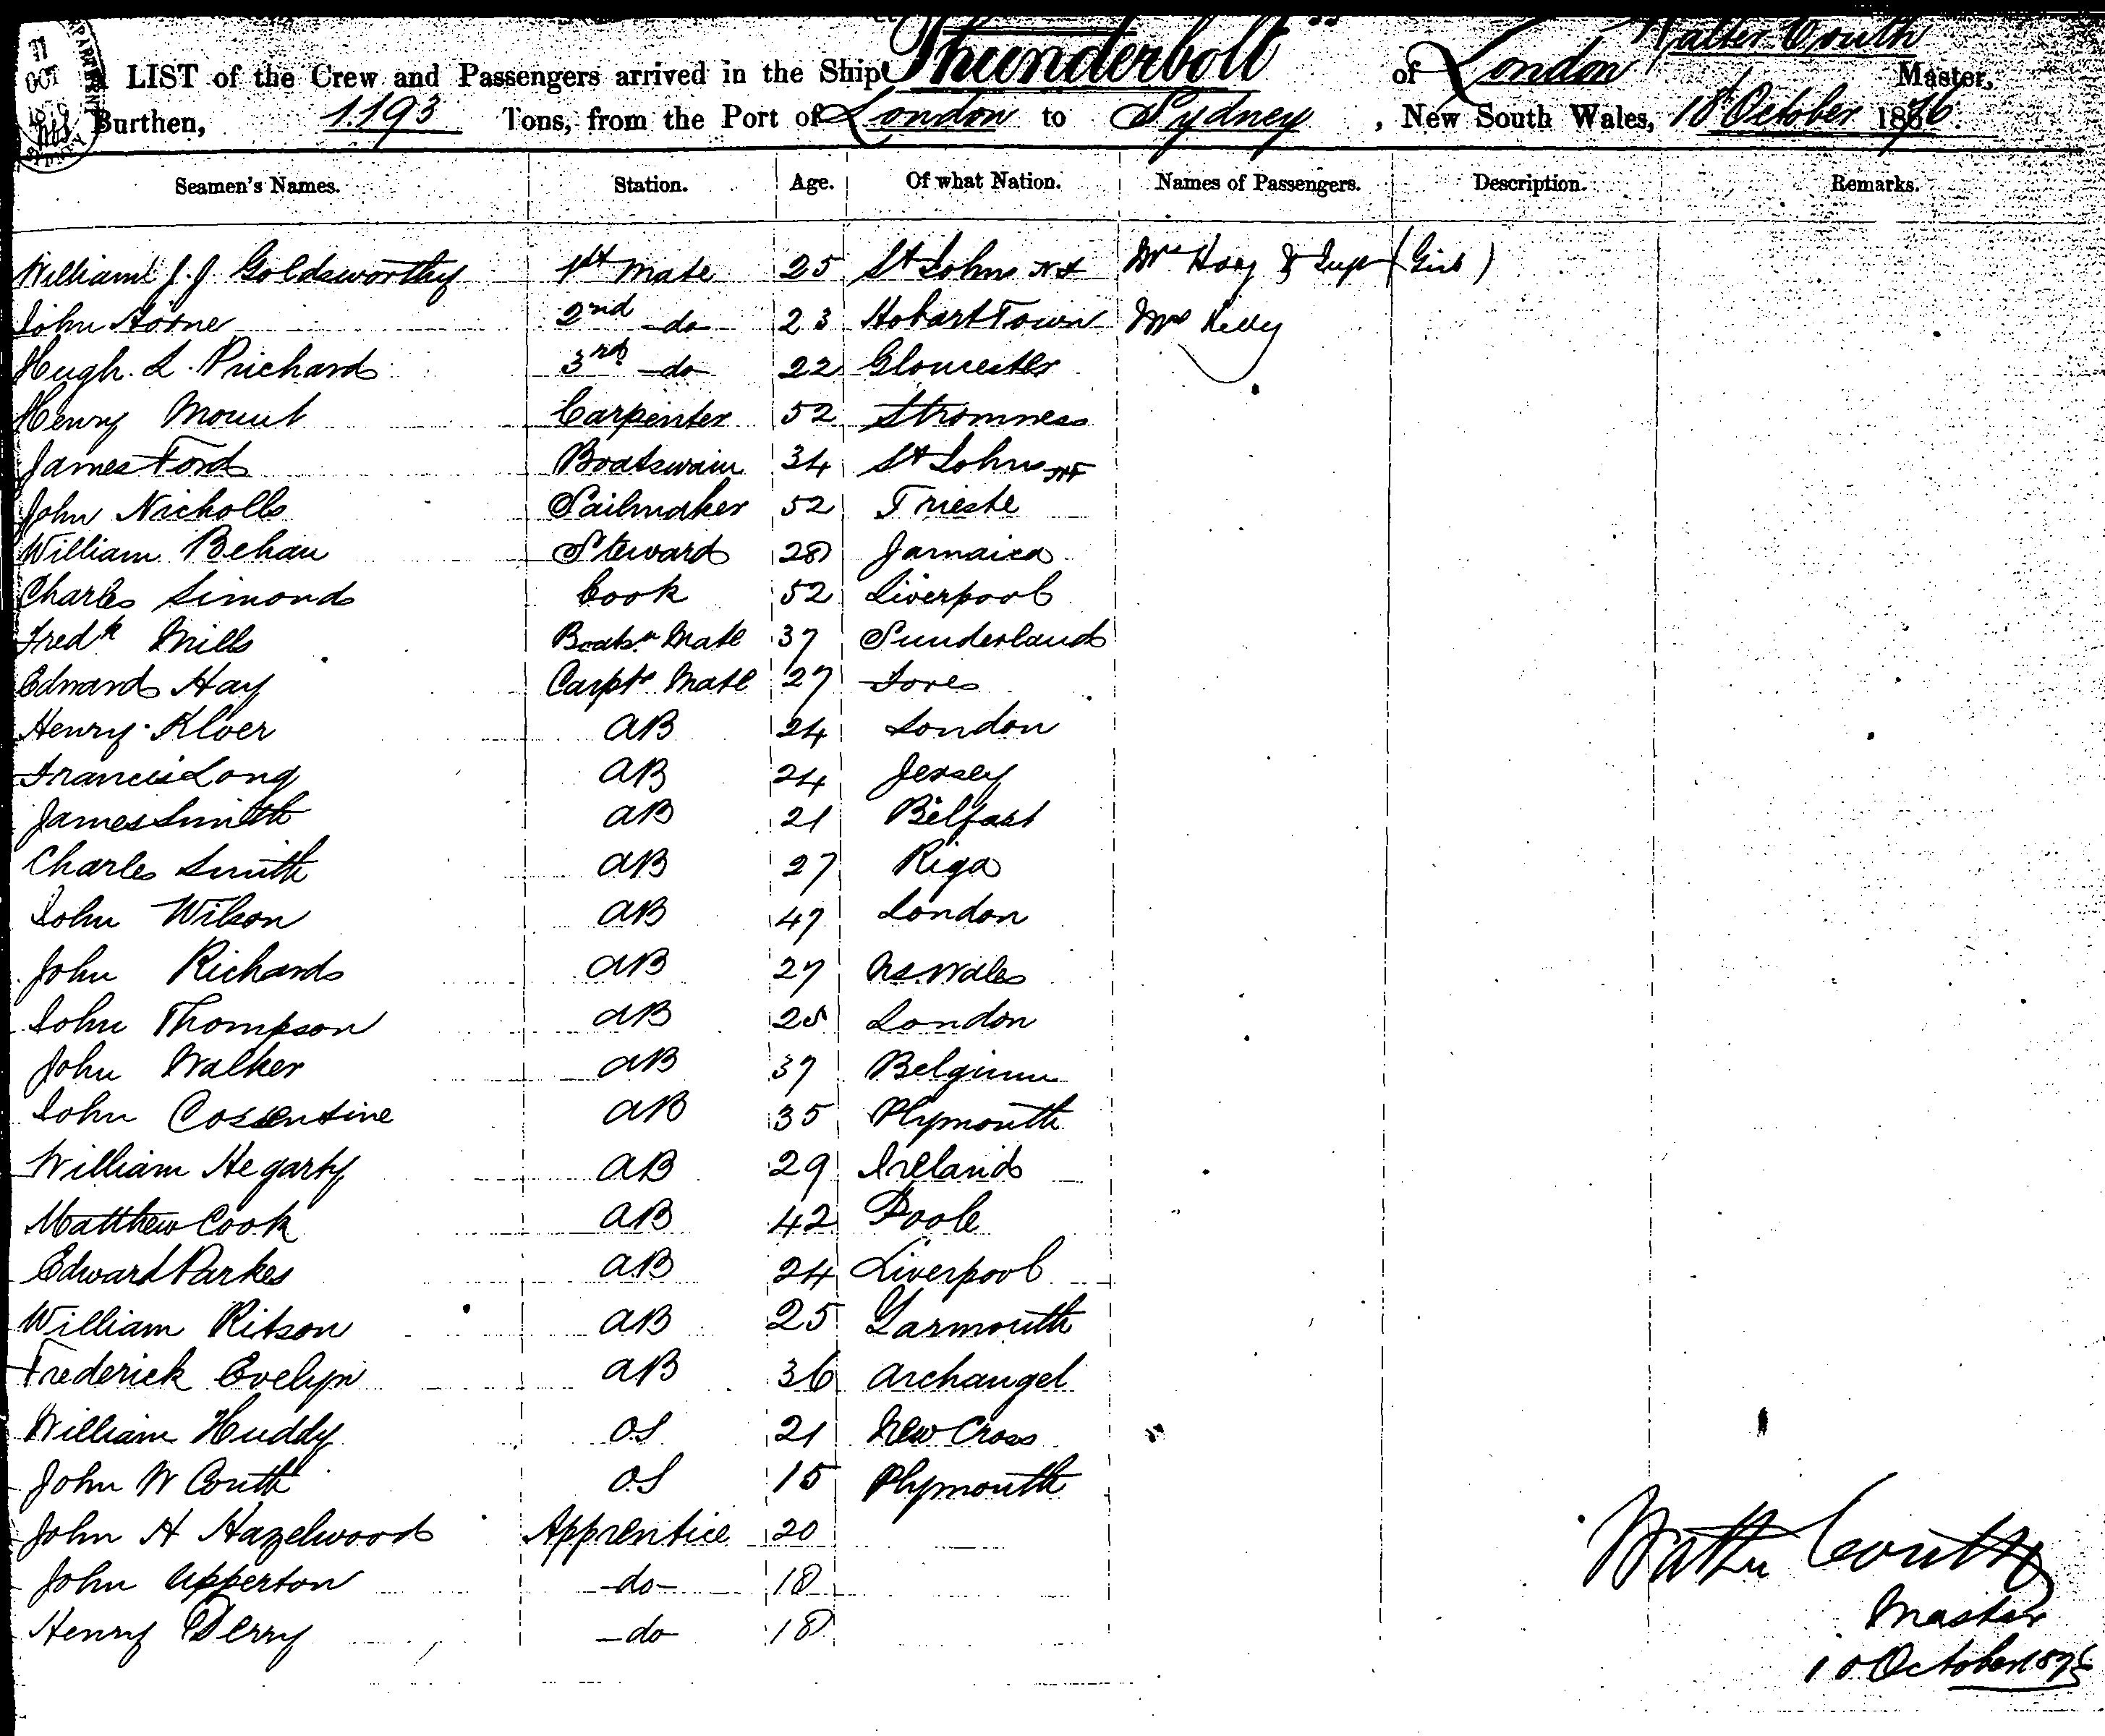 Walter Couth
A LIST of the Crew and Passengers arrived in the Ship "Thunderbolt" of London Master,
Burthen, 1193 Tons, from the Port of London to Sydney, New South Wales, 18 October 1876
Seamen's Names. Station. Age. Of what Nation. Names of Passengers. Description. Remarks.
William J. J. Goldsworthy 1st Mate 25 St Johns NF Mr Hoey & (Girl)
John Horne 2nd do 23 Hobart Town Mrs Kelly
Hugh. L. Prichard 3rd do 22 Gloucester
Henry Mount Carpenter 52 Stromness
James Ford Boatswain 34 St Johns NF
John Nicholls Sailmaker 52 Trieste
William Behan Steward 28 Jamaica
Charles Simonds Cook 52 Liverpool
Fredk Mills Boatsn Mate 37 Sunderland
Edward Hay Carptr Mate 27
Henry Kloer AB 24 London
Francis Long AB 24 Jersey
James Smith AB 21 Belfast
Charles Smith AB 27 Riga
John Wilson AB 47 London
John Richards AB 27 N.S. Wales
John Thompson AB 25 London
John Walker AB 37 Belgium
John Cossentine AB 35 Plymouth
William Hegarty AB 29 Ireland
Matthew Cook AB 42 Poole
Edward Parkes AB 24 Liverpool
William Ritson AB 25 Yarmouth
Frederick Evelyn AB 36 Archangel
William Huddy OS 21 New Cross
John W Couth OS 15 Plymouth
John H Hazelwood Apprentice 20
John Upperton -do- 18
Henry Derry -do- 18
Walter Couth
Master
18 October 1876